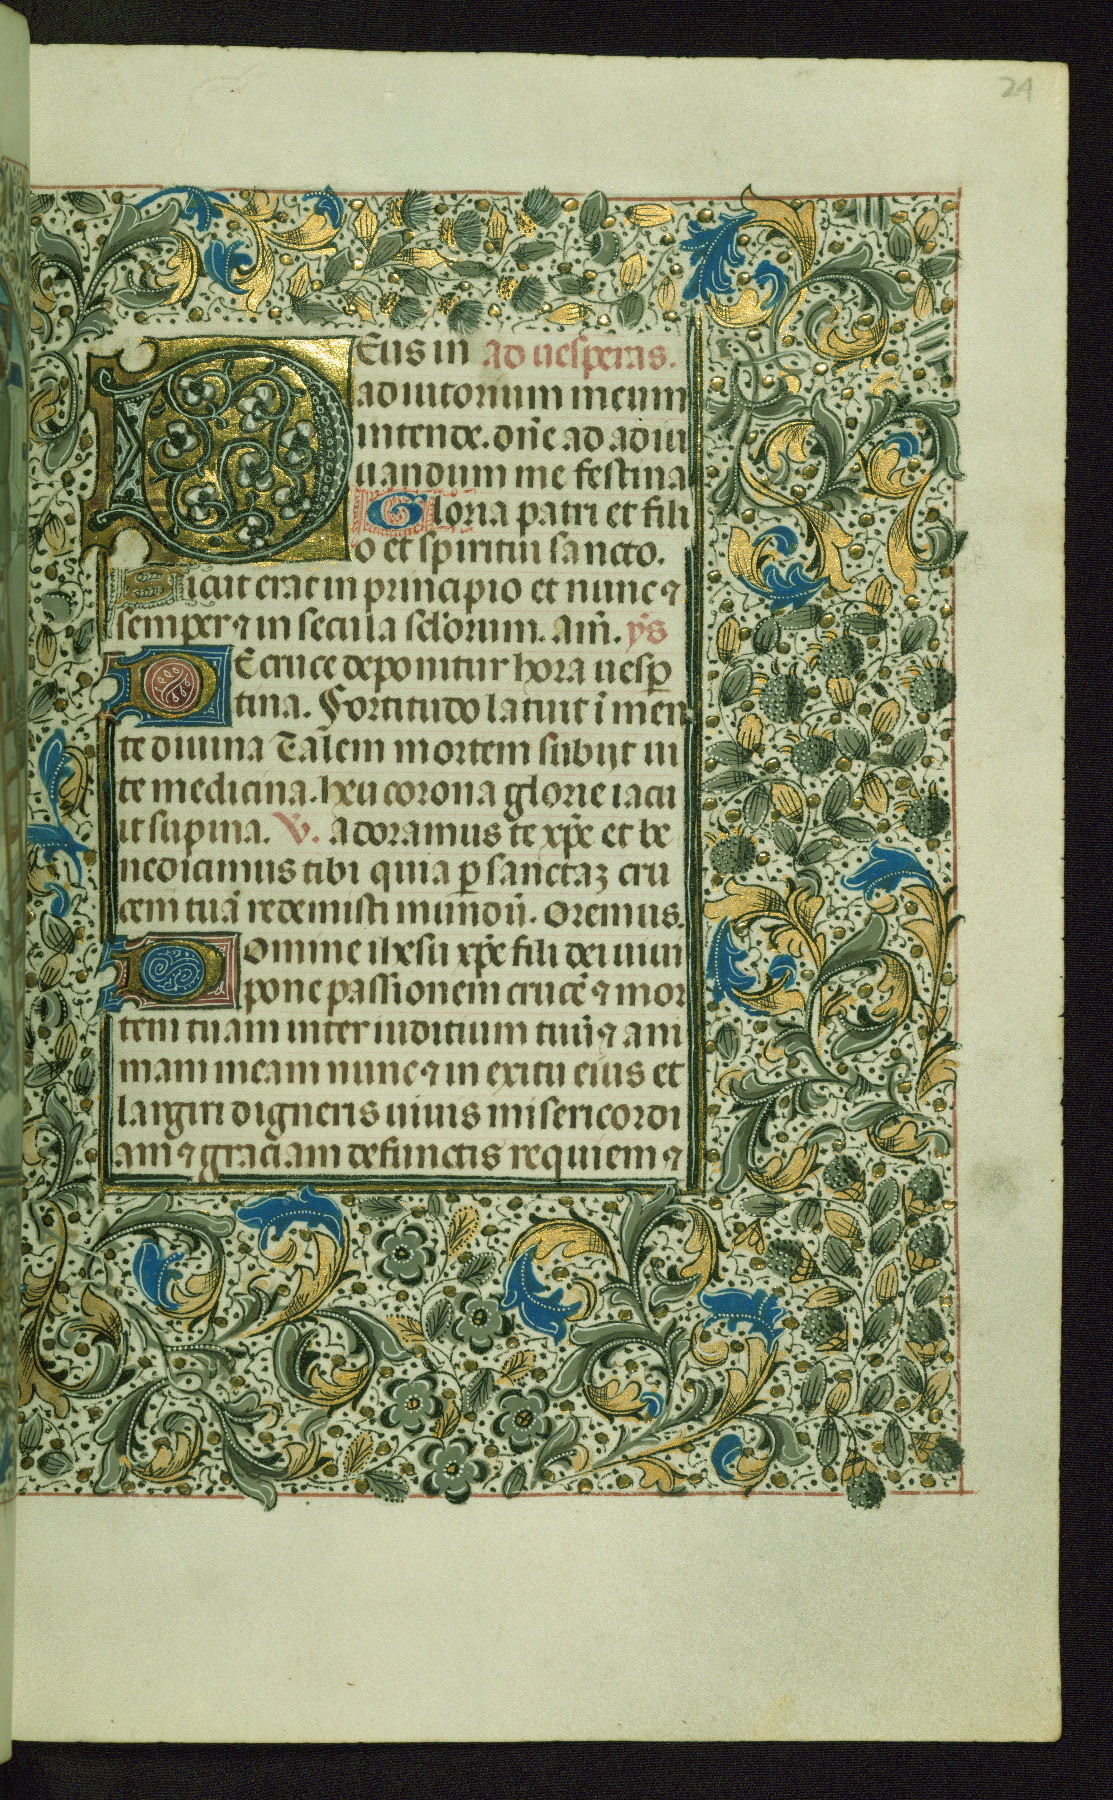 24
Deus in ad uesperas.
adiutorium meum
intende. dñe ad adiu
uandum me festina
Gloria patri et fili
o et spiritui sancto.
Sicut erat in principio et nunc ⁊
semper ⁊ in secula sclorum. Am̃. ẏs
DE cruce deponitur hora uesp̃
tina. Fortitudo latuit ĩ men
te diuina Talem mortem subijt ui
te medicina. heu corona glorie iacu
it supina. V̾. adoramus te xp̃e et be
nedicimus tibi quia ꝑ sanctaʒ cru
cem tuã redemisti mundũ. Oremus.
Domine ihesu xp̃e fili dei uiui
pone passionem crucẽ ⁊ mor
tem tuam inter iuditium tuũ ⁊ ani
mam meam nunc ⁊ in exitu eius et
largiri digneris uiuis misericordi
am ⁊ graciam defunctis requiem ⁊